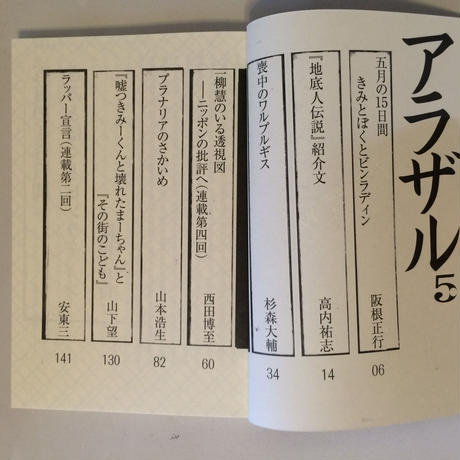 アラザル5
五月の15日間
きみとぼくとビンラディン
阪根正行
06
『地底人伝説』紹介文
高内祐志
14
喪中のワルプルギス
杉森大輔
34
一柳慧のいる透視図
――ニッポンの批評へ(連載第四回)
西田博至
60
プラナリアのさかいめ
山本浩生
82
『嘘つきみーくんと壊れたまーちゃん』と
『その街のこども』
山下望
130
ラッパー宣言(連載第二回)
安東三
141